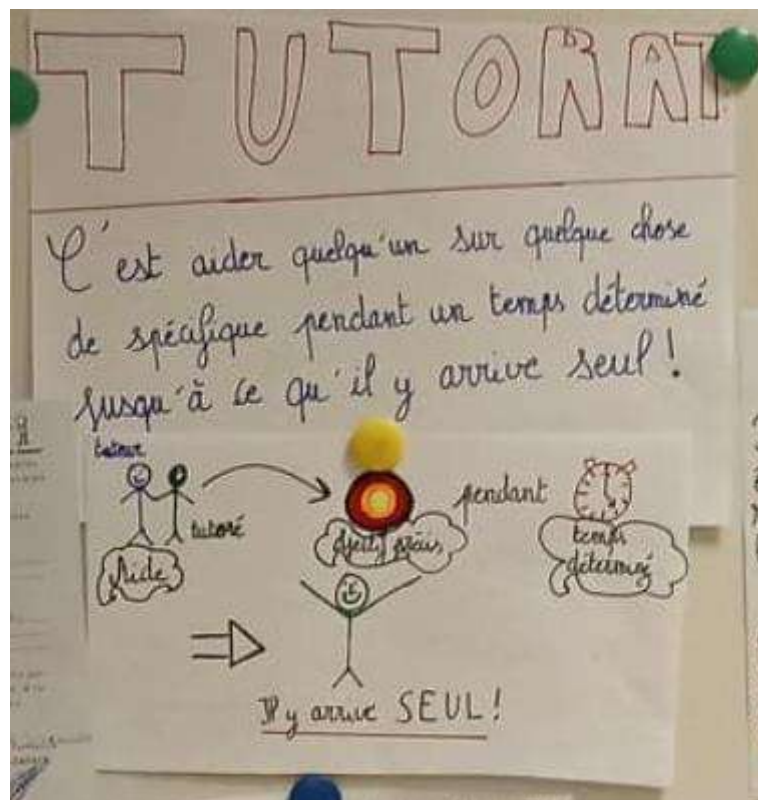 TUTORAT
C'est aider quelqu'un sur quelque chose
de spécifique pendant un temps déterminé
jusqu'à ce qu'il y arrive seul !
tuteur
tutoré
Aide
Objectif précis
pendant
temps
déterminé
Il y arrive SEUL !